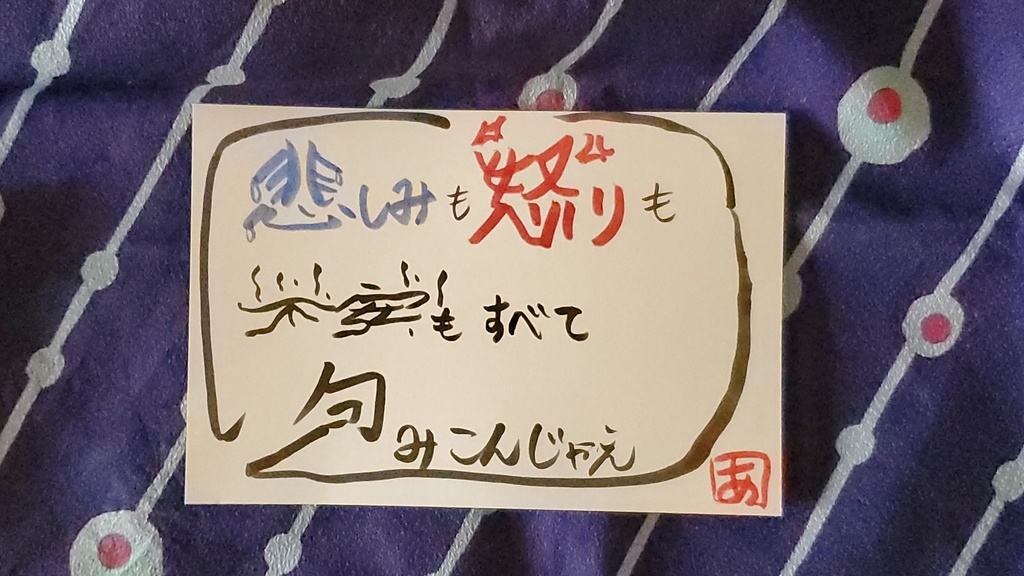 悲しみも怒りも
不安もすべて
包みこんじゃえ
あ